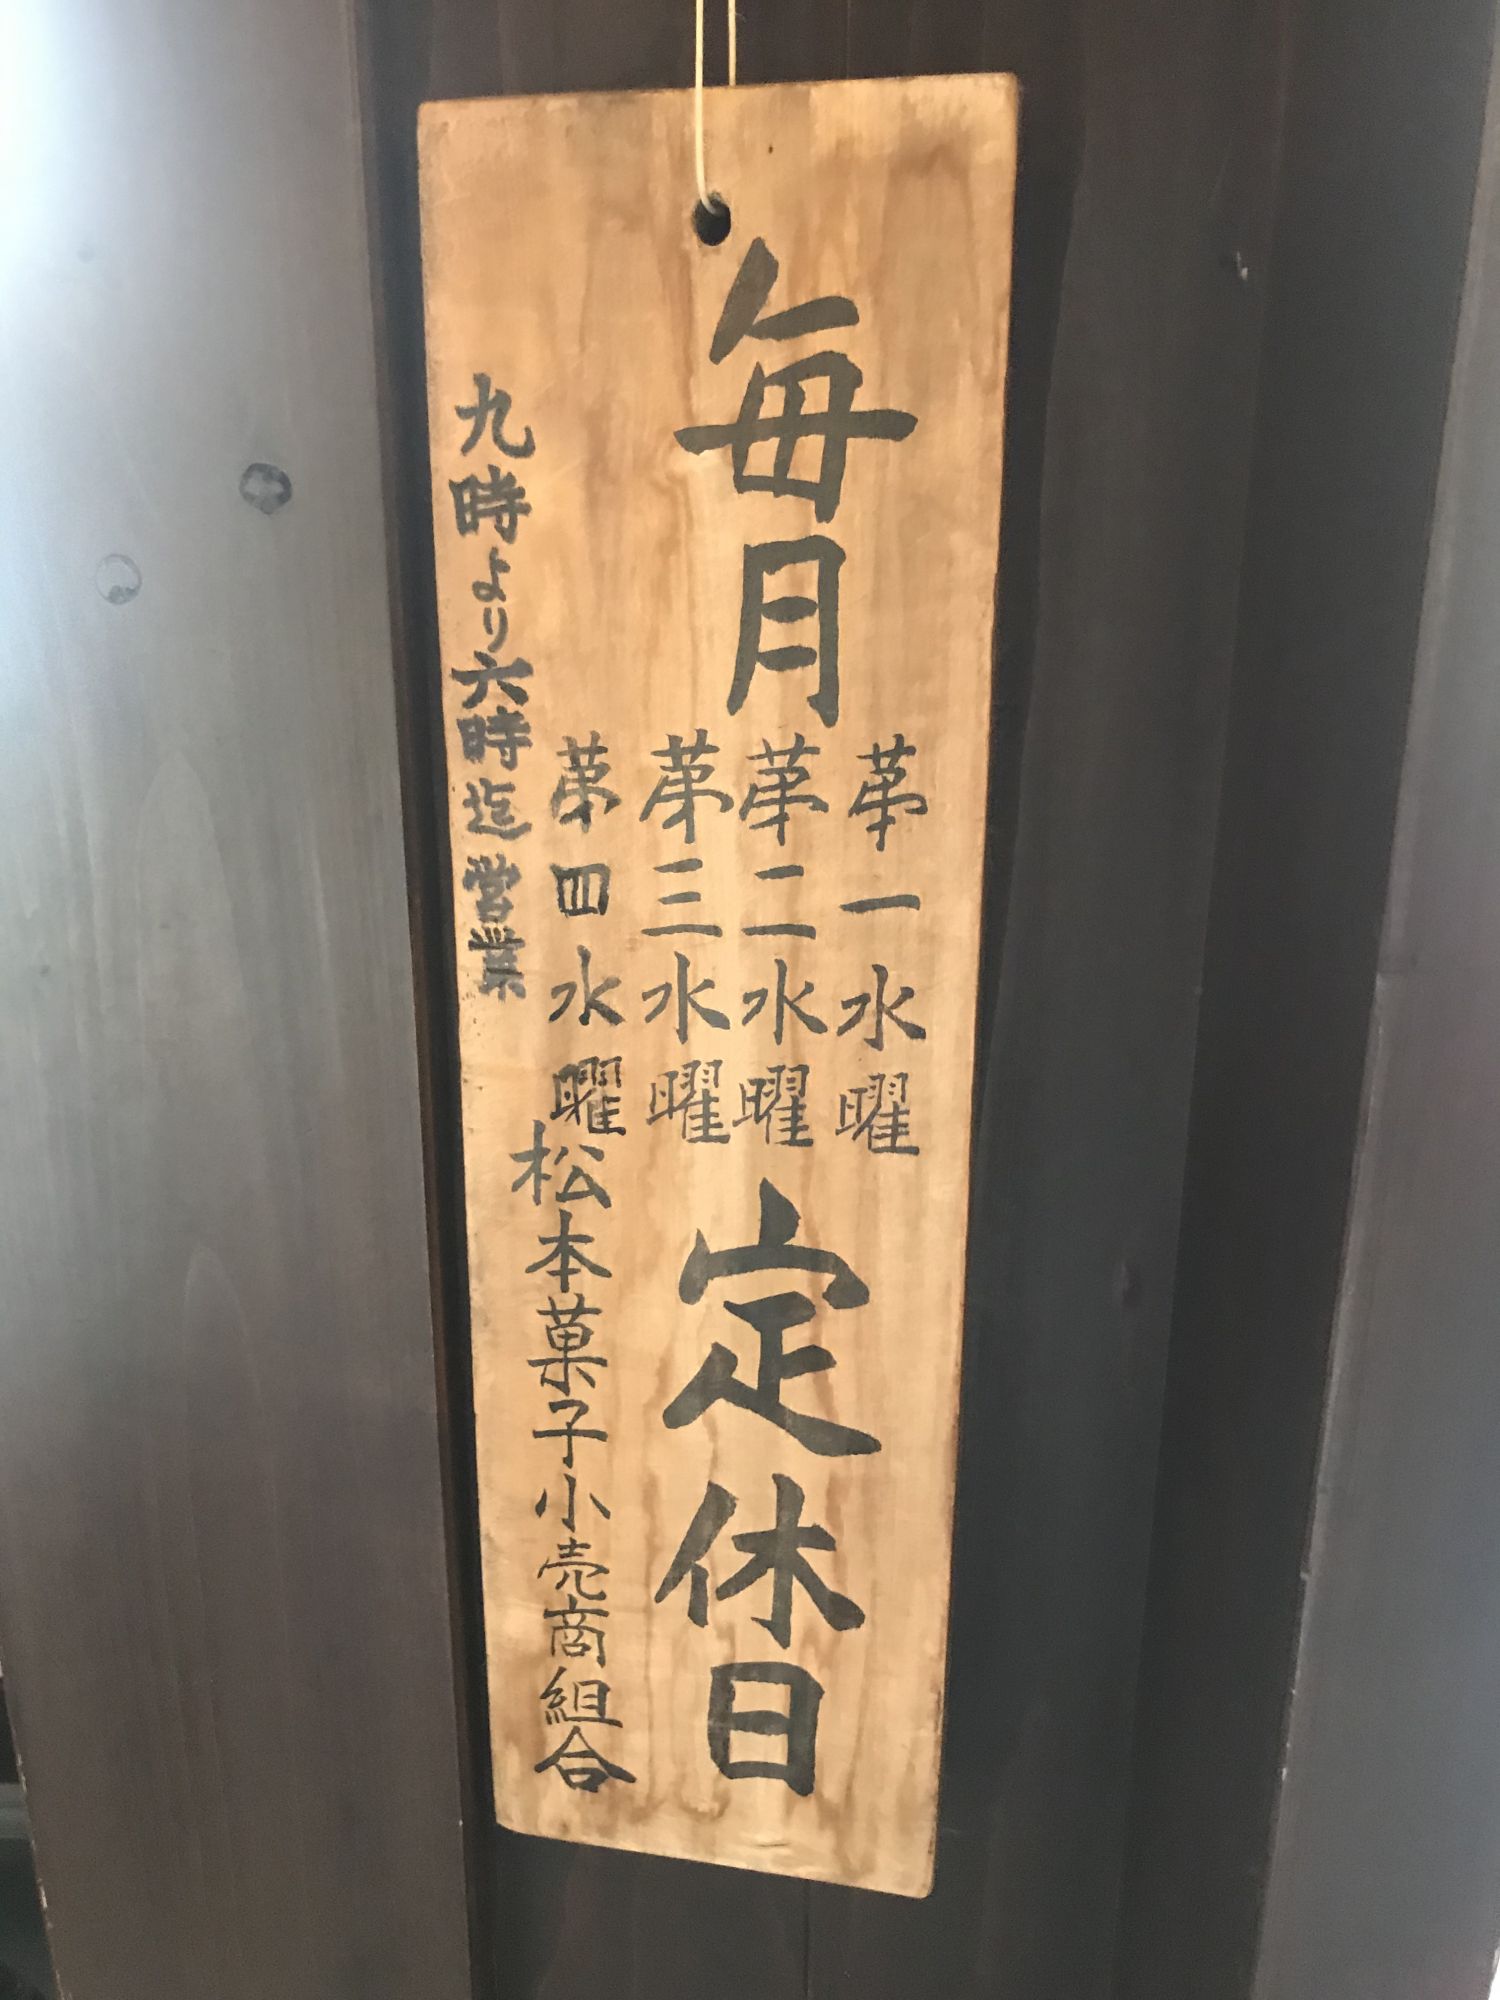 毎月
第一水曜
第二水曜
第三水曜
第四水曜
定休日
九時より六時迄営業
松本菓子小売商組合